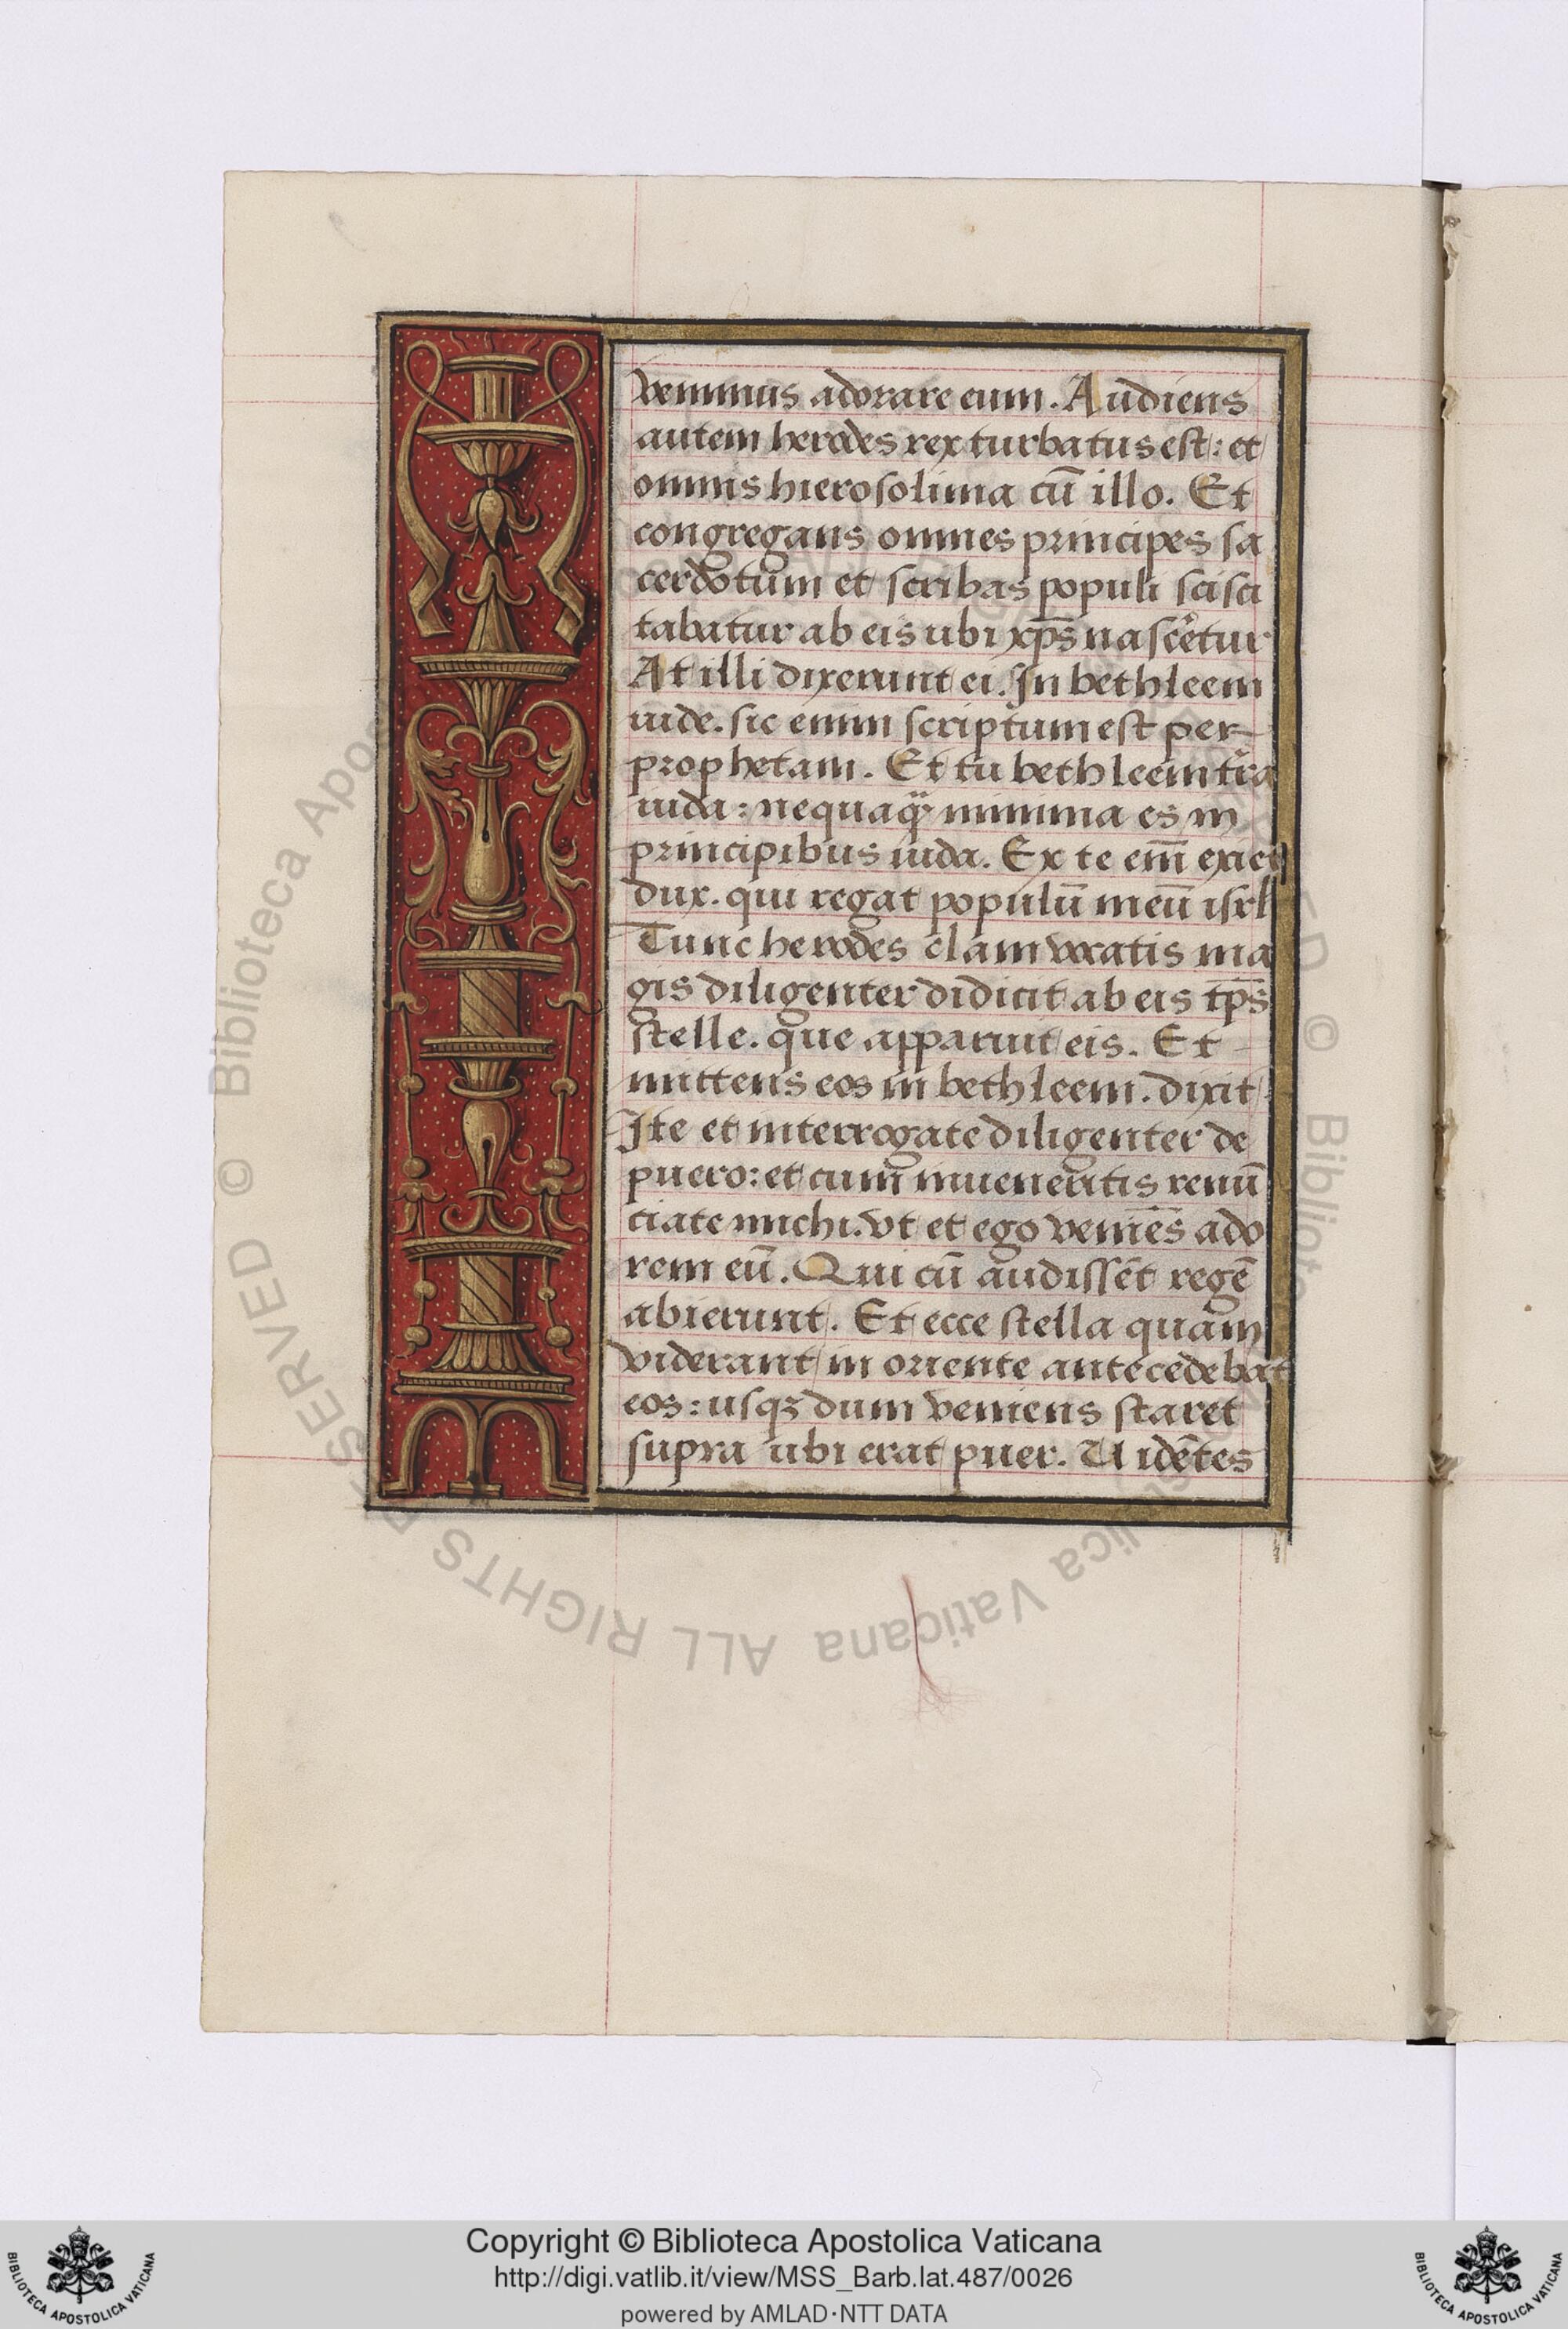 venimus adorare eum. Audiens
autem herodes rex turbatus est: et
omnis hierosolima cū illo. Et
congregans omnes principes sa
cerdotum et scribas populi scisci
tabatur ab eis ubi xp̄s nascēetur
At illi dixerunt ei. In bethleem
iude. sic enim scriptum est per
prophetam. Et tu bethleem tr̄a
iuda: nequaq̄ minima es in
principibus iuda. Ex te em̄ exiet
dux. qui regat populū meū isrl
Tunc herodes clam vocatis ma
gis diligenter didicit ab eis tp̄s
stelle. que apparuit eis. Et
mittens eos in bethleem. dixit
Ite et interrogate diligenter de
puero: et cum inueneritis renū
ciate michi. vt et ego veniēs ado
rem eū. Qui cū audissēt regē
abierunt. Et ecce stella quam
viderant in oriente antecedebat
eos: usqꝫ dum veniens staret
supra ubi erat puer. Uidētes
Copyright © Biblioteca Apostolica Vaticana
http://digi.vatlib.it/view/MSS_Barb.lat.487/0026
powered by AMLAD·NTT DATA
BIBLIOTECA APOSTOLICA VATICANA
BIBLIOTECA APOSTOLICA VATICANA
© Biblioteca Apostolica Vaticana ALL RIGHTS RESERVED